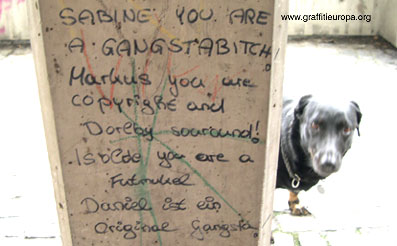 www.graffitieuropa.org
SABINE YOU ARE
A GANGSTABITCH!
Markus you are
copyright and
Dorlby souround!
Isolde you are a
Futmukel
Daniel ist ein
Original Gangsta